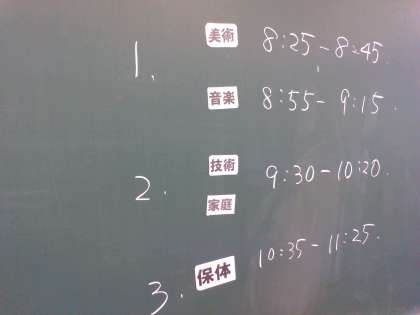 1. 美術 8:25-8:45.
音楽 8:55-9:15.
2. 技術 9:30-10:20.
家庭
3. 保体 10:35-11:25.